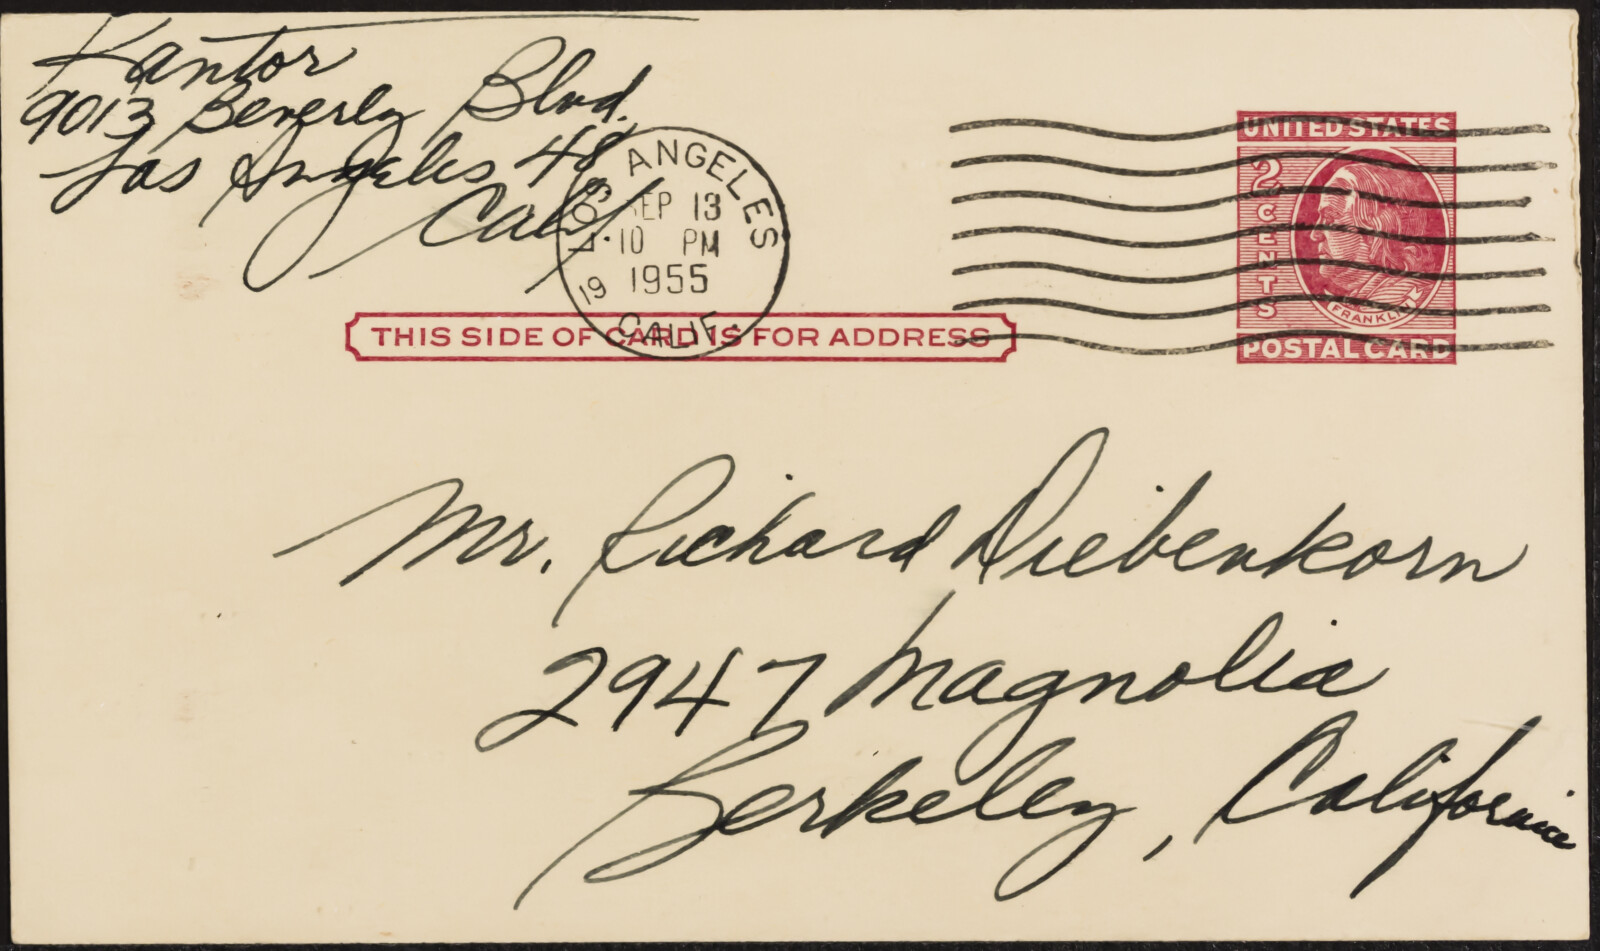 Kantor
9013 Beverly Blvd.
Los Angeles 48
Calif
LOS ANGELES
CALIF.
SEP 13
10 PM
1955
19
UNITED STATES
2 CENTS
FRANKLIN
POSTAL CARD
THIS SIDE OF CARD IS FOR ADDRESS
Mr. Richard Diebenkorn
2947 Magnolia
Berkeley, California